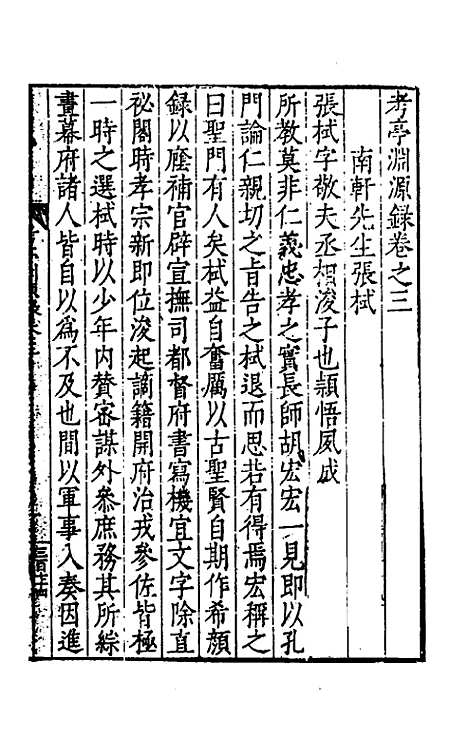 考亭淵源錄卷之三
南軒先生張栻
張栻字敬夫丞相浚子也穎悟夙成
所教莫非仁義忠孝之實長師胡宏宏一見即以孔
門論仁親切之旨告之栻退而思若有得焉宏稱之
曰聖門有人矣栻益自奮厲以古聖賢自期作希顏
錄以廕補官辟宣撫司都督府書寫機宜文字除直
祕閣時孝宗新即位浚起謫籍開府治戎參佐皆極
一時之選栻時以少年內贊密謀外參庶務其所綜
畫幕府諸人皆自以為不及也間以軍事入奏因進